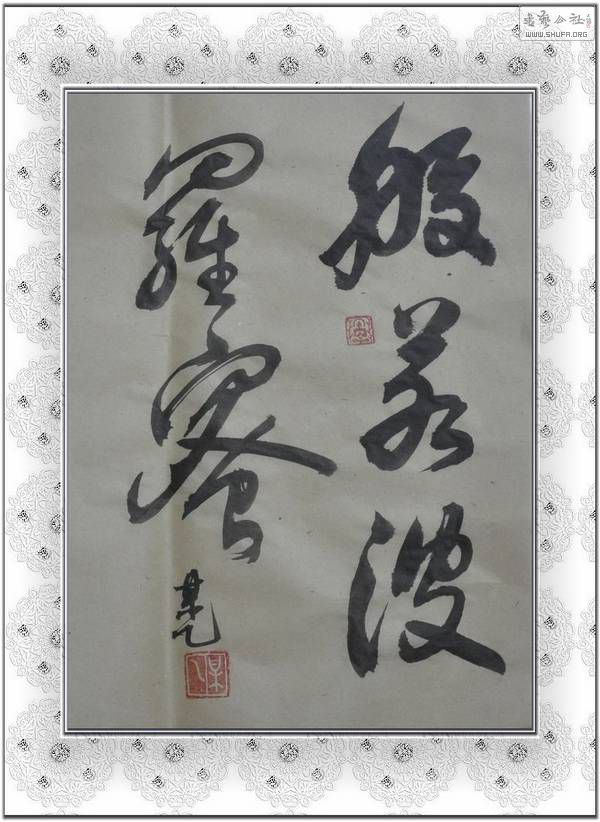 般若波
羅蜜
書艺公社
WWW.SHUFA.ORG